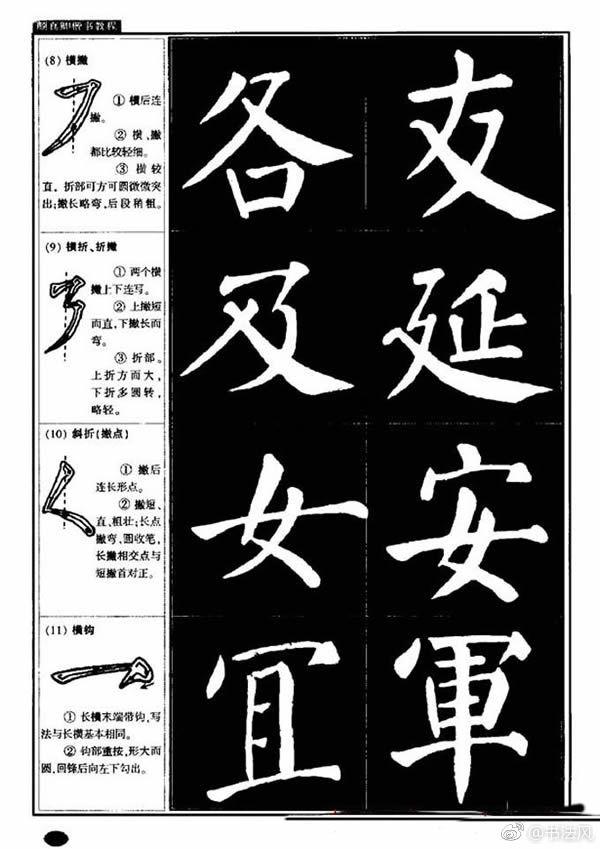 颜真卿楷书教程
(8) 横撇
① 横后连
撇。
② 横、撇
都比较轻细。
③ 横较
直, 折部可方可圆微微突
出;撇长略弯,后段稍粗。
各
支
(9) 横折、折撇
① 两个横
撇上下连写。
② 上撇短
而直,下撇长而
弯。
③ 折部。
上折方而大,
下折多圆转,
略轻。
及
延
(10) 斜折(撇点)
① 撇后
连长形点。
② 撇短、
直、粗壮;长点
撇弯、圆收笔,
长撇相交点与
短撇首对正。
女
安
(11) 横钩
① 长横末端带钩,写
法与长横基本相同。
② 钩部重按,形大而
圆,回锋后向左下勾出。
宜
軍
@书法风